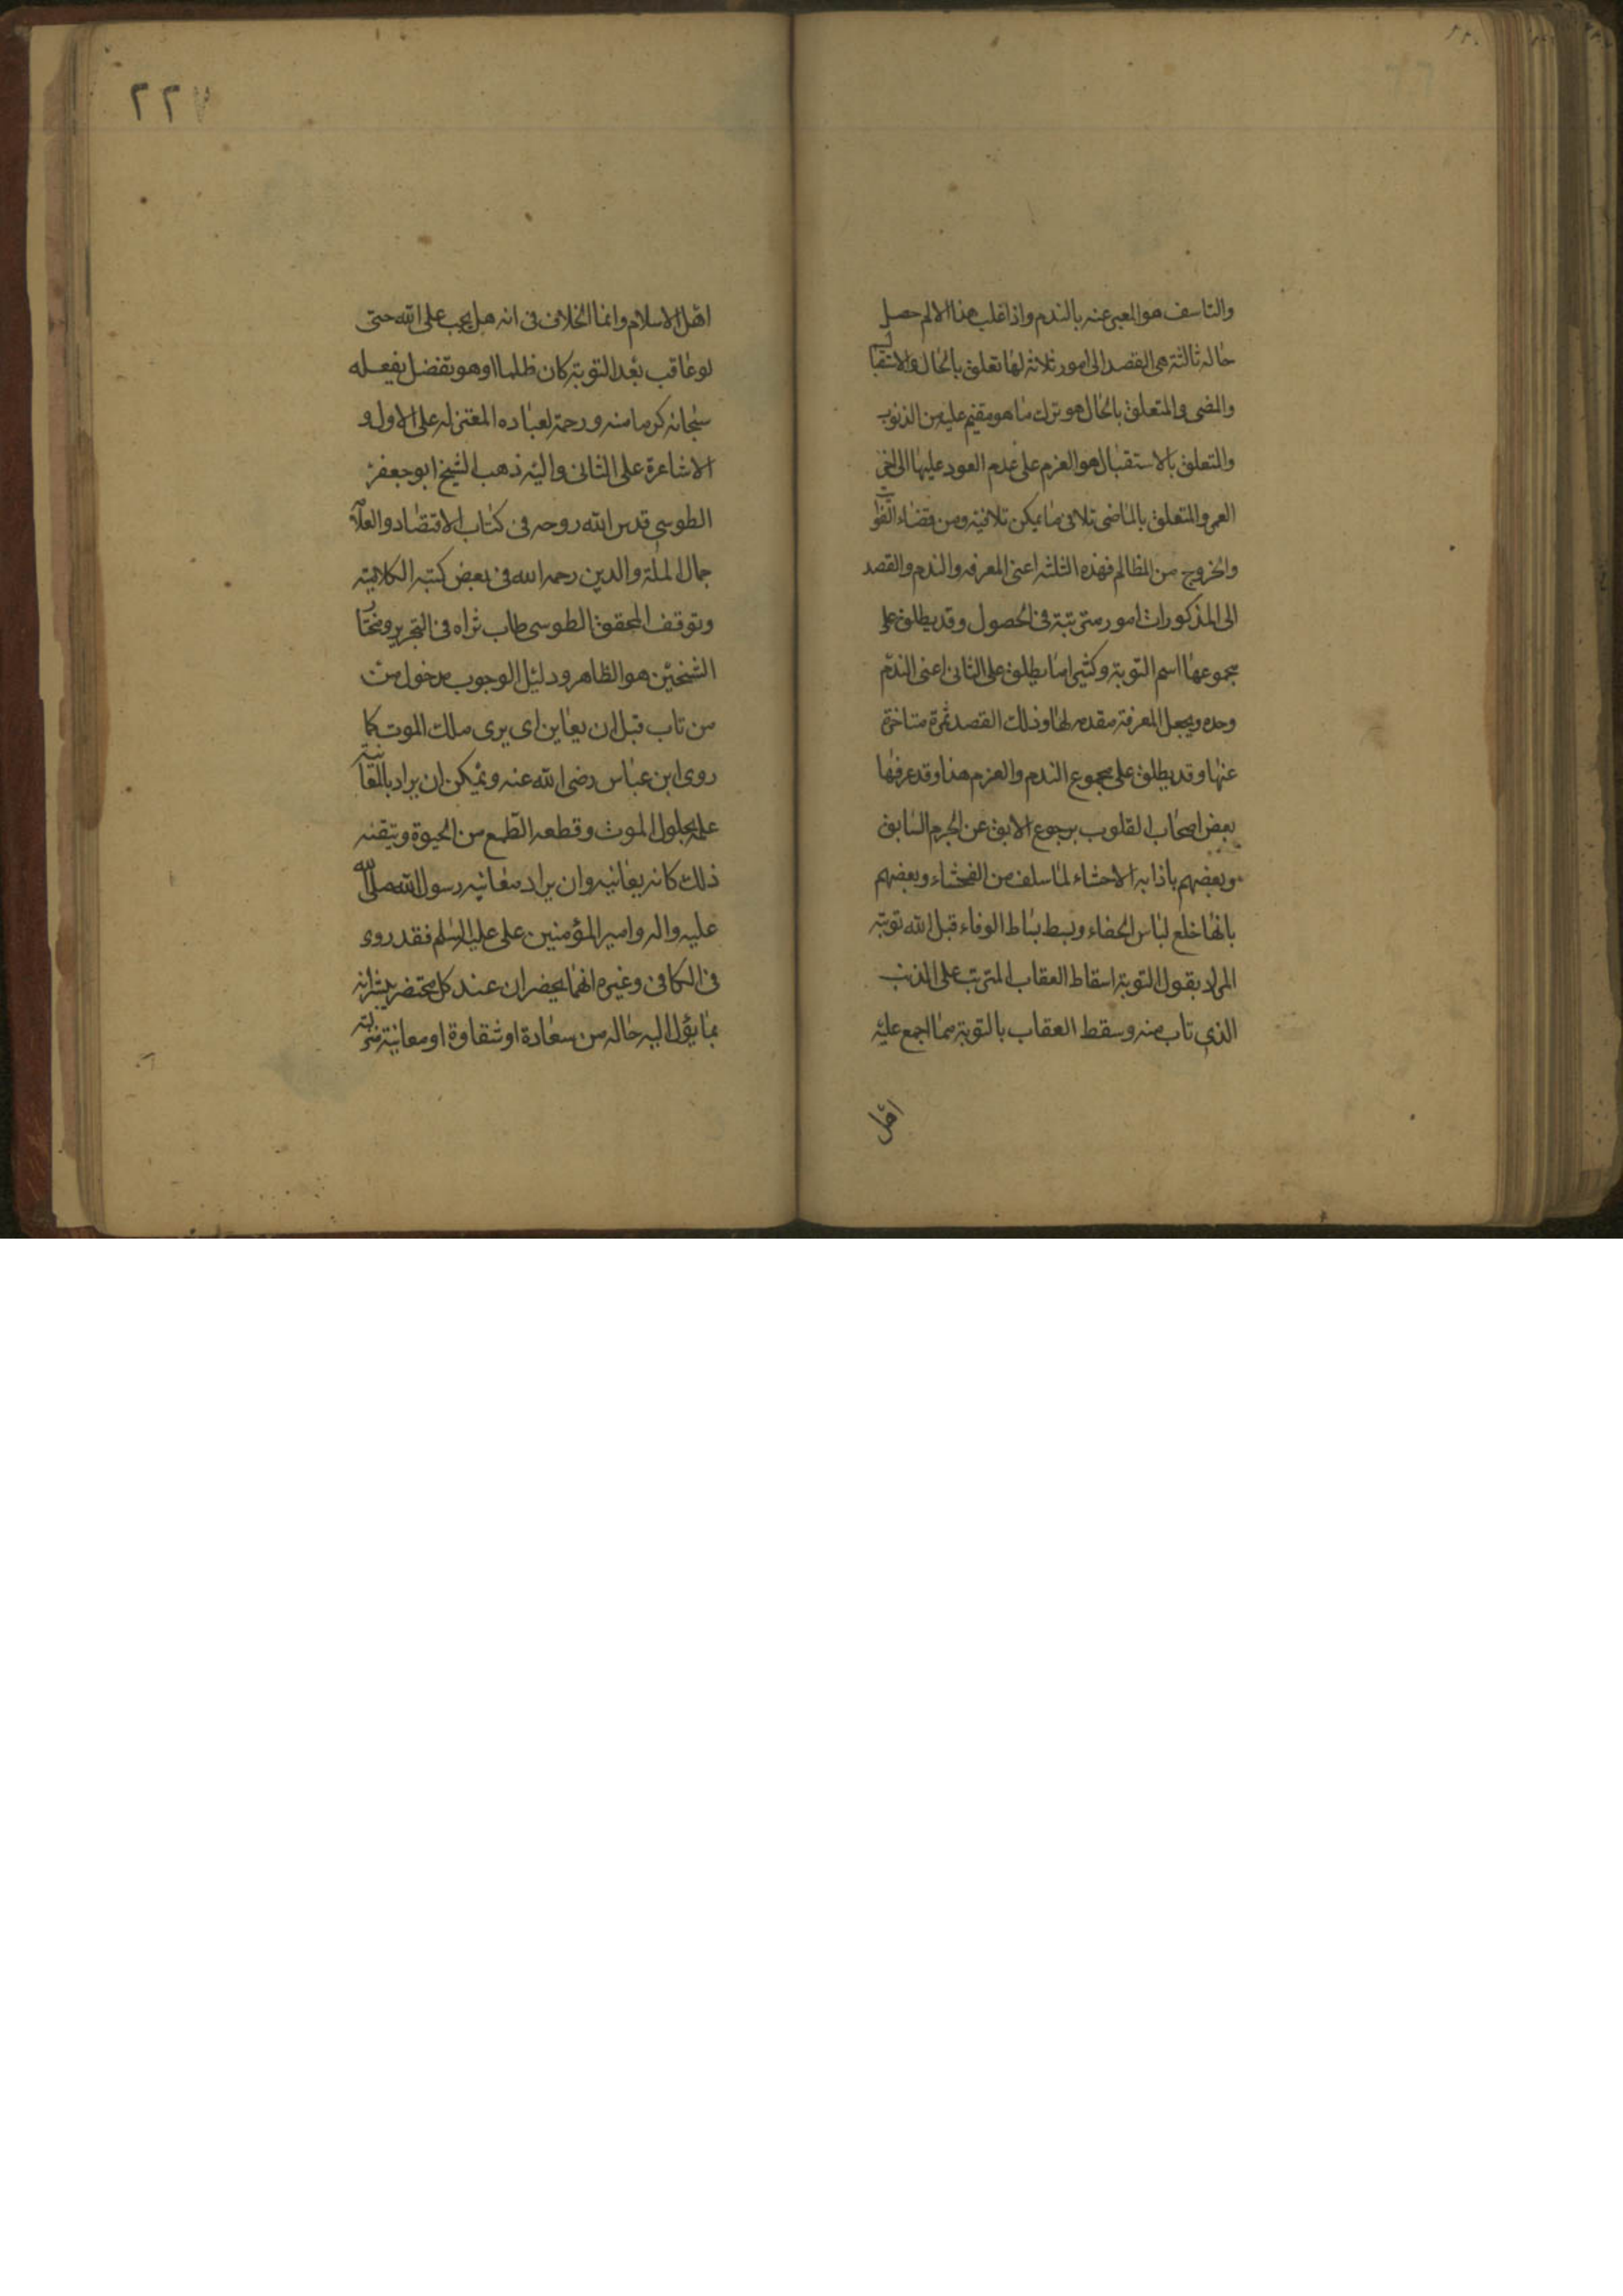 والتاسف هو المعبر عنه بالندم واذا غلب هذا الالم حصل
حاله ثالثة هى القصد الى امور ثلاثة لها تعلق بالحال والاستقبال
والمضى والمتعلق بالحال هو ترك ما هو مقيم عليه من الذنوب
والمتعلق بالاستقبال هو العزم على عدم العود عليها الى اخر
العمر والمتعلق بالماضى تلافى ما يمكن تلافيه ومن قضاء الفوايت
والخروج من المظالم فهذه الثلثه اعنى المعرفه والندم والقصد
الى المذكورات امور مترتبة فى الحصول وقد يطلق على
مجموعها اسم التوبة وكثيرا ما يطلق على الثانى اعنى الندم
وحده ويجعل المعرفة مقدمه لها وذلك القصد ثمرة متاخرة
عنها وقد يطلق على مجموع الندم والعزم هذا وقد عرفها
بعض اصحاب القلوب برجوع الابق عن الجرم السابق
وبعضهم باذابه الاحشاء لما سلف من الفحشاء وبعضهم
بانها خلع لباس الجفاء وبسط بساط الوفاء قبل الله توبته
المراد بقبول التوبة اسقاط العقاب المترتب على الذنب
الذى تاب منه وسقط العقاب بالتوبة مما اجمع عليه
اهل
٢٢٧
اهل الاسلام وانما الخلاف فى انه هل يجب على الله حتى
لو عاقب بعد التوبة كان ظلما او هو تفضل يفعله
سبحانه كرما منه ورحمة لعباده المعتزله على الاول و
الاشاعرة على الثانى واليه ذهب الشيخ ابو جعفر
الطوسى قدس الله روحه فى كتاب الاقتصاد والعلامه
جمال الملة والدين رحمه الله فى بعض كتبه الكلامية
وتوقف المحقق الطوسى طاب ثراه فى التجريد ومختار
الشيخين هو الظاهر ودليل الوجوب مدخول من
من تاب قبل ان يعاين اى يرى ملك الموت كما
روى ابن عباس رضى الله عنه ويمكن ان يراد بالمعاينة
علمه بحلول الموت وقطعه الطمع من الحيوة وتيقنه
ذلك كانه يعاينه وان يراد معاينه رسول الله صلى الله
عليه واله وامير المؤمنين على عليه السلم فقد روى
فى الكافى وغيره انهما يحضران عند كل محتضر يبشرانه
بما يؤل اليه حاله من سعادة او شقاوة او معاينة منزلته